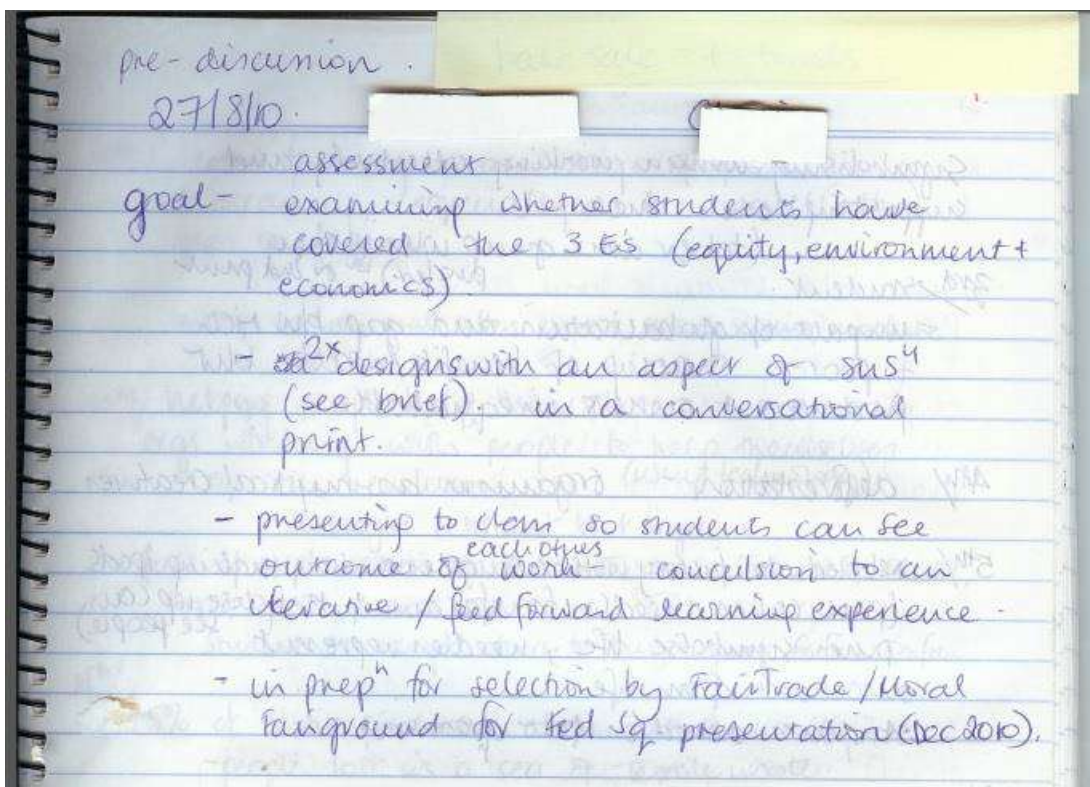 pre-discussion.
27/8/10.
assessment
goal - examining whether students have
covered the 3 Es (equity, environment +
economics).
- 2x designs with an aspect of sus⁴
(see brief). in a conversational
print.
- presenting to class so students can see
each others
outcome of work - conculsion to an
iterative / feed forward learning experience.
- in prepⁿ for selection by FairTrade / Moral
Fairground for Fed Sq presentation (Dec 2010).